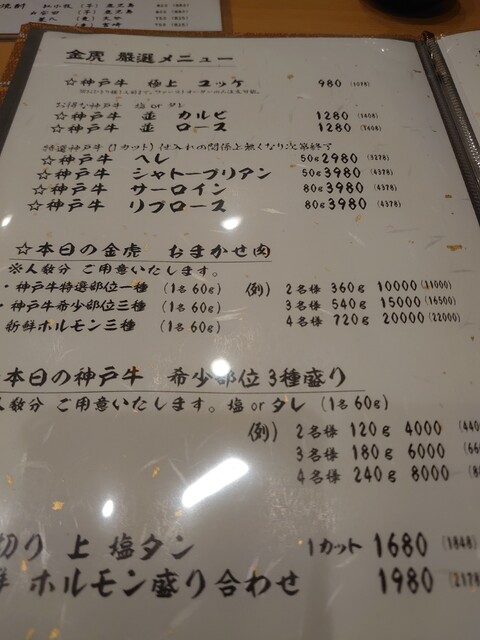 金虎 厳選メニュー
☆神戸牛 極上 ユッケ 980 (1078)
お得な神戸牛 塩 or タレ
☆神戸牛 並 カルビ 1280 (1408)
☆神戸牛 並 ロース 1280 (1408)
特選神戸牛(1カット) 仕入れの関係上無くなり次第終了
☆神戸牛 ヘレ 50g 2980 (3278)
☆神戸牛 シャトーブリアン 50g 3980 (4378)
☆神戸牛 サーロイン 80g 3980 (4378)
☆神戸牛 リブロース 80g 3980 (4378)
☆本日の金虎 おまかせ肉
※人数分 ご用意いたします。
・神戸牛特選部位一種 (1名60g) 例) 2名様 360g 10000 (11000)
・神戸牛希少部位三種 (1名60g) 3名様 540g 15000 (16500)
新鮮ホルモン三種 (1名60g) 4名様 720g 20000 (22000)
本日の神戸牛 希少部位3種盛り
人数分 ご用意いたします。塩 or タレ (1名60g)
例) 2名様 120g 4000
3名様 180g 6000
4名様 240g 8000
切り 上 塩タン 1カット 1680 (1848)
ホルモン盛り合わせ 1980 (2178